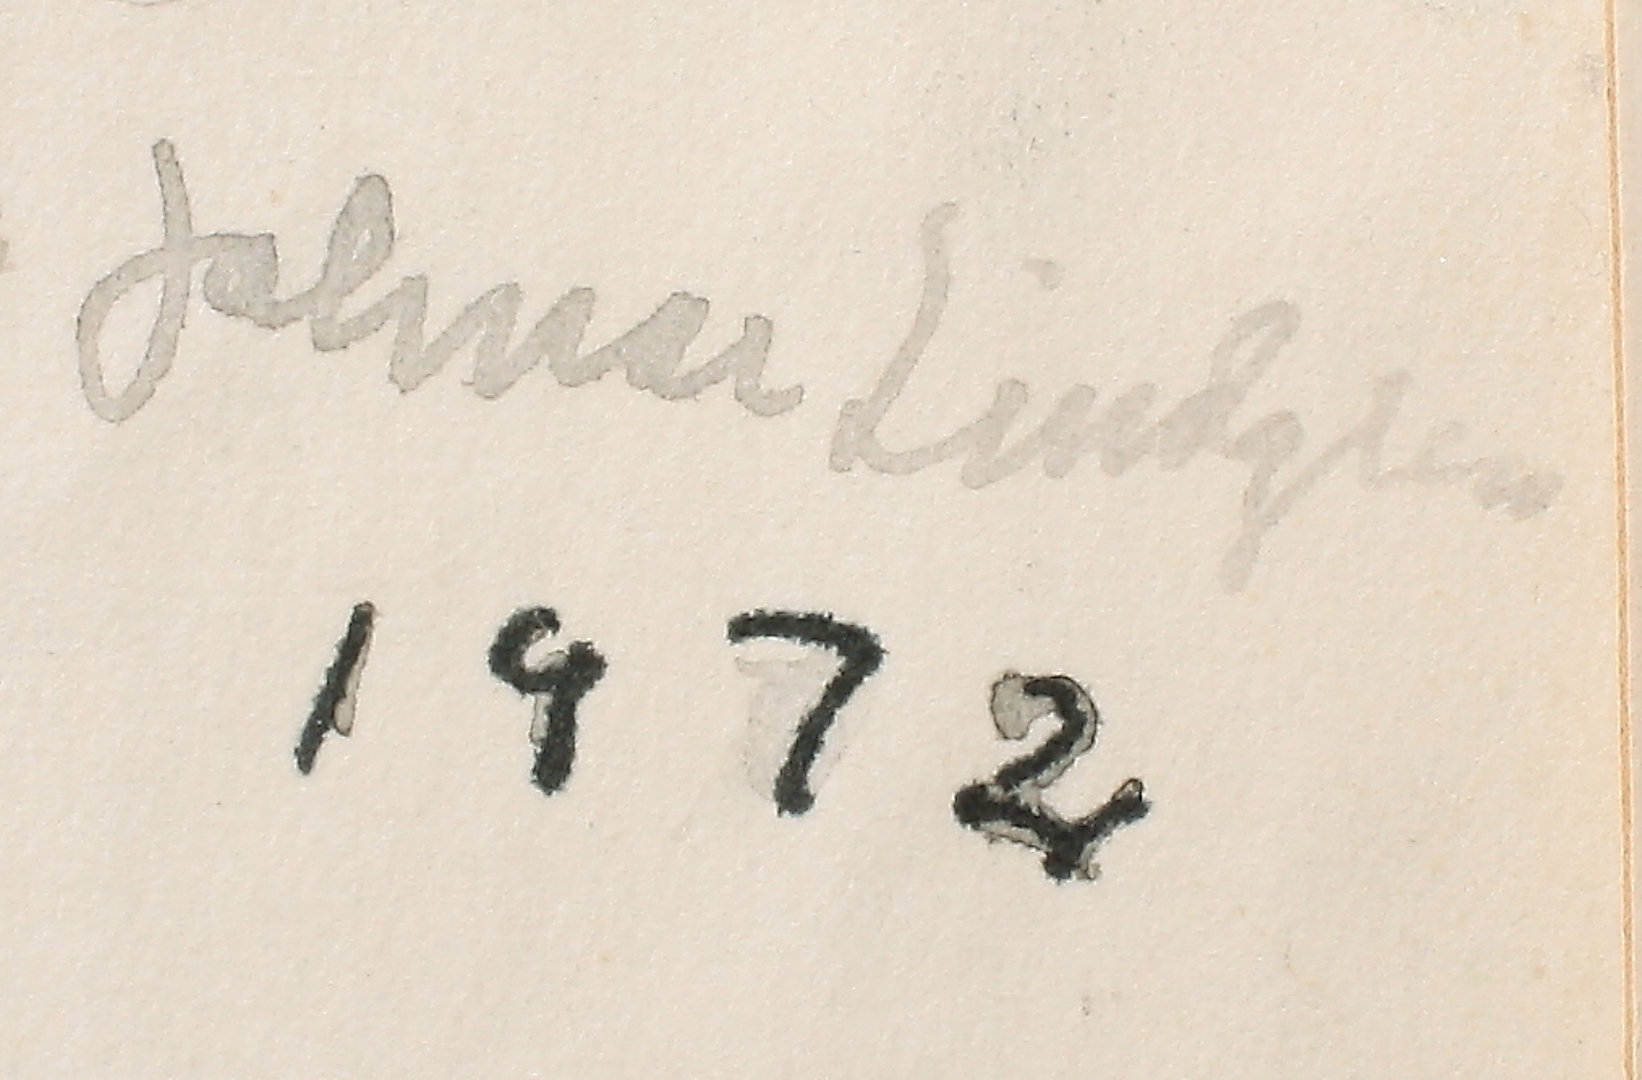 Jalmar Lindgren
1972